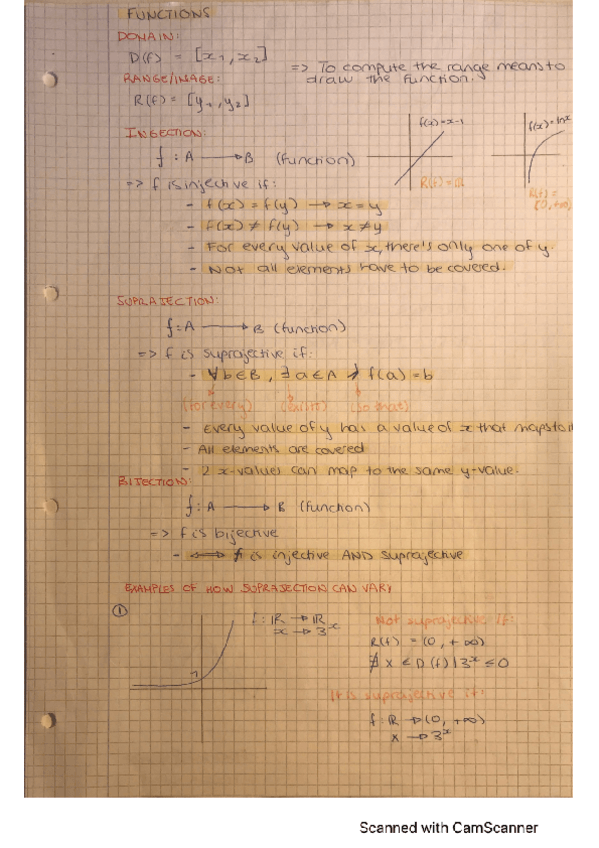 FUNCTIONS
DOMAIN:
D(f) = [x₁, x₂]
=> To compute the range means to
draw the function.
RANGE/IMAGE:
R(f) = [y₁, y₂]
INGECTION:
f : A → B (function)
f(x)=x-1
R(f)=ℝ
f(x)=lnx
R(f)=
(0,+∞)
=> f is injective if:
- f(x) = f(y) → x = y
- f(x) ≠ f(y) → x ≠ y
- For every value of x, there's only one of y.
- Not all elements have to be covered.
SUPRAJECTION:
f : A → B (function)
=> f is suprajective if:
- ∀b∈B, ∃a∈A / f(a) = b
(for every) (so that)
- Every value of y has a value of x that maps to it
- All elements are covered
- 2 x-values can map to the same y-value.
BIJECTION:
f : A → B (function)
=> f is bijective
- <=> f is injective AND suprajective
EXAMPLES OF HOW SUPRAJECTION CAN VARY
①
1
f : ℝ → ℝ
x → 3ˣ
Not suprajective if:
R(f) = (0, +∞)
∄ x ∈ D(f) | 3ˣ ≤ 0
It is suprajective if:
f : ℝ → (0, +∞)
x → 3ˣ
Scanned with CamScanner